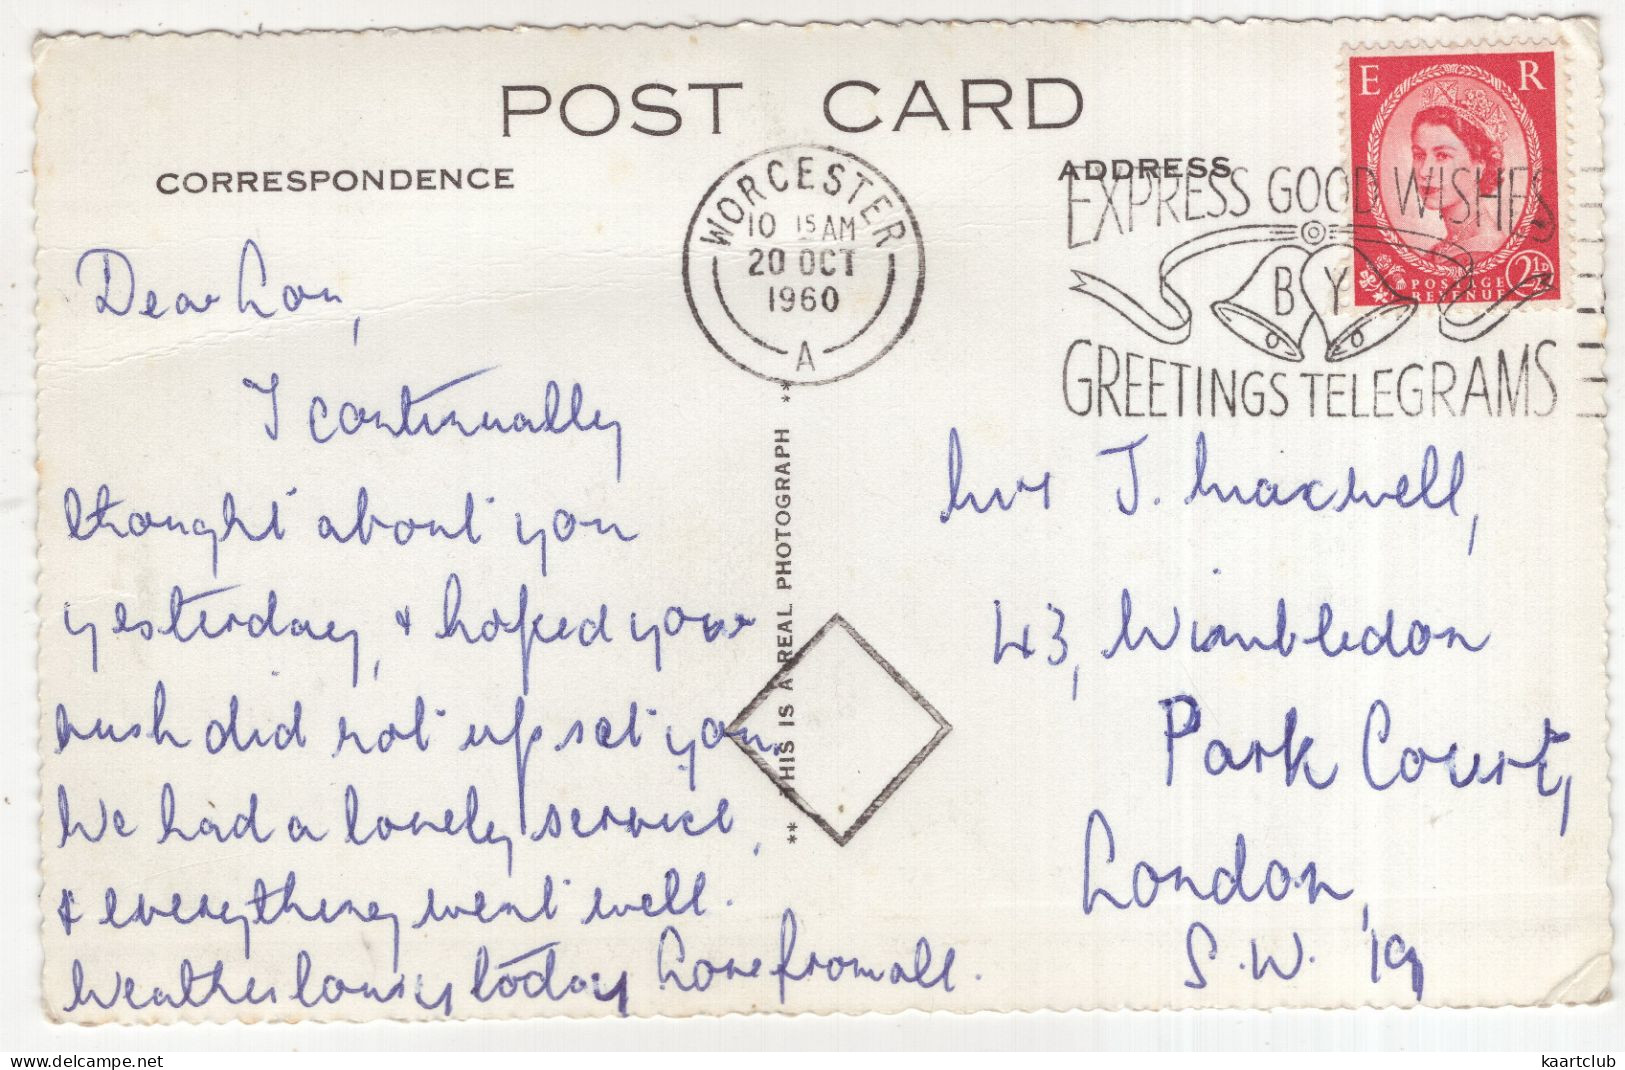 POST CARD
CORRESPONDENCE
ADDRESS
E R
POSTAGE
REVENUE
2½D
WORCESTER
10 15 AM
20 OCT
1960
A
EXPRESS GOOD WISHES
BY
GREETINGS TELEGRAMS
Dear Lou,
I continually
thought about you
yesterday, & hoped your
rush did not upset you.
We had a lovely service,
& everything went well.
Weather lousy today Love from all.
** THIS IS A REAL PHOTOGRAPH **
Mrs J. Maxwell,
43, Wimbledon
Park Court,
London,
S.W. 19
www.delcampe.net
kaartclub